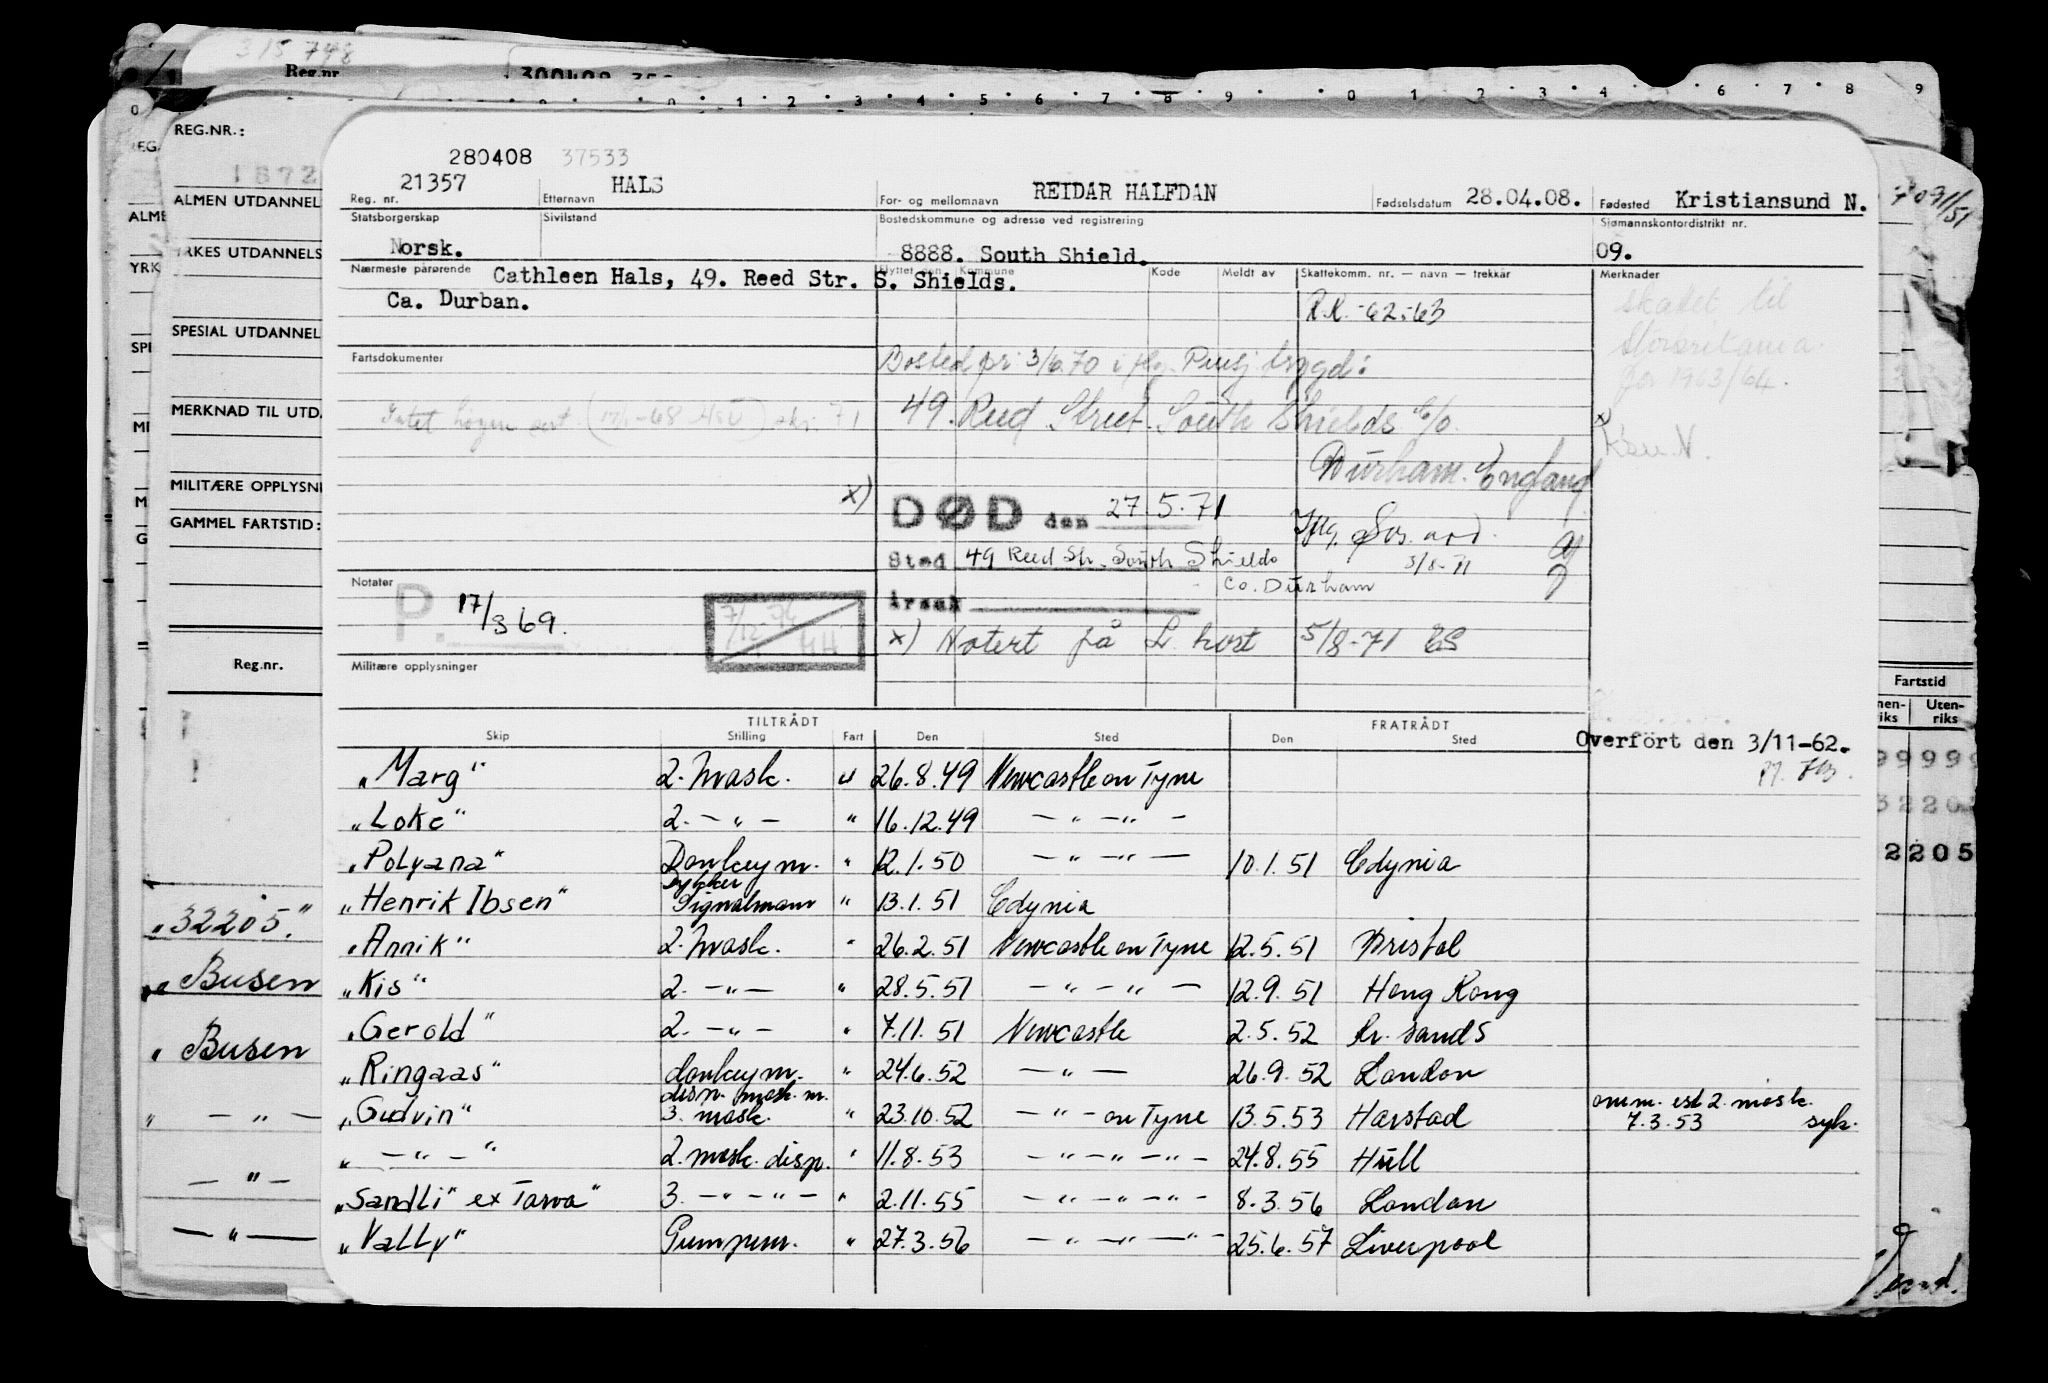 315 748
Reg.nr
0 1 2 3 4 5 6 7 8 9 0 1 2 3 4 6 7 8 9
REG.NR.:
1872
ALMEN UTDANNEL
YRKES UTDANNELS
SPESIAL UTDANNEL
MERKNAD TIL UTD.
MILITÆRE OPPLYSNI
GAMMEL FARTSTID:
Reg.nr.
"32205."
" Busen
" Busen
" — " —
— " —
— " —
280408 37533
21357 HALS REIDAR HALFDAN 28.04.08. Kristiansund N.
Reg. nr. Etternavn For- og mellomnavn Fødselsdatum Fødested
Statsborgerskap Sivilstand Bostedskommune og adresse ved registrering Sjømannskontordistrikt nr.
Norsk. 8888. South Shield. 09.
Nærmeste pårørende Cathleen Hals, 49. Reed Str. S. Shields.
Flyttet den Kommune Kode Meldt av Skattekomm. nr. — navn — trekkår Merknader
Ca. Durban.
R.K. -62-63
skattet til
Storbritania
for 1963/64.
Fartsdokumenter
Bosted pr. 3/6.70 i flg. Pensj. trygd:
49. Reed Street. South Shields C/o.
Durham. England
x)
Ksu. N.
x)
DØD den 27.5.71
Sted 49 Reed Str. South Shields
Co. Durham
3/8-71
Årsak
x) Notert på L. kort 5/8-71 ES
Notater
P. 17/3 69.
7/12-76
HH
Militære opplysninger
TILTRÅDT FRATRÅDT
Skip Stilling Fart Den Sted Den Sted
Overført den 3/11-62.
"Marg" 2. mask. u 26.8.49 Newcastle on Tyne
"Loke" 2. — " — " 16.12.49 — " — " —
"Polyana" Donkeym. " 12.1.50 — " — " — 10.1.51 Gdynia
"Henrik Ibsen" Signalmann " 13.1.51 Gdynia
"Annik" 2. mask. " 26.2.51 Newcastle on Tyne 12.5.51 Bristol
"Kis" 2. — " — " 28.5.51 — " — " — 12.9.51 Hong Kong
"Gerold" 2. — " — " 7.11.51 Newcastle 2.5.52 Kr. sands
"Ringaas" donkeym. " 24.6.52 — " — 26.9.52 London
"Gudvin" disp. mask. m. 3. mask. " 23.10.52 — " — on Tyne 13.5.53 Harstad omm. est 2. mask. 7.3.53 syk.
" — " — " 2. mask. disp. " 11.8.53 — " — " — " — 24.8.55 Hull
"Sandli" ex Tarva" 3. — " — " — " 2.11.55 — " — " — " — 8.3.56 London
"Vally" Pumpem. " 27.3.56 — " — " — " — 25.6.57 Liverpool
Fartstid
Uten-
riks
2205